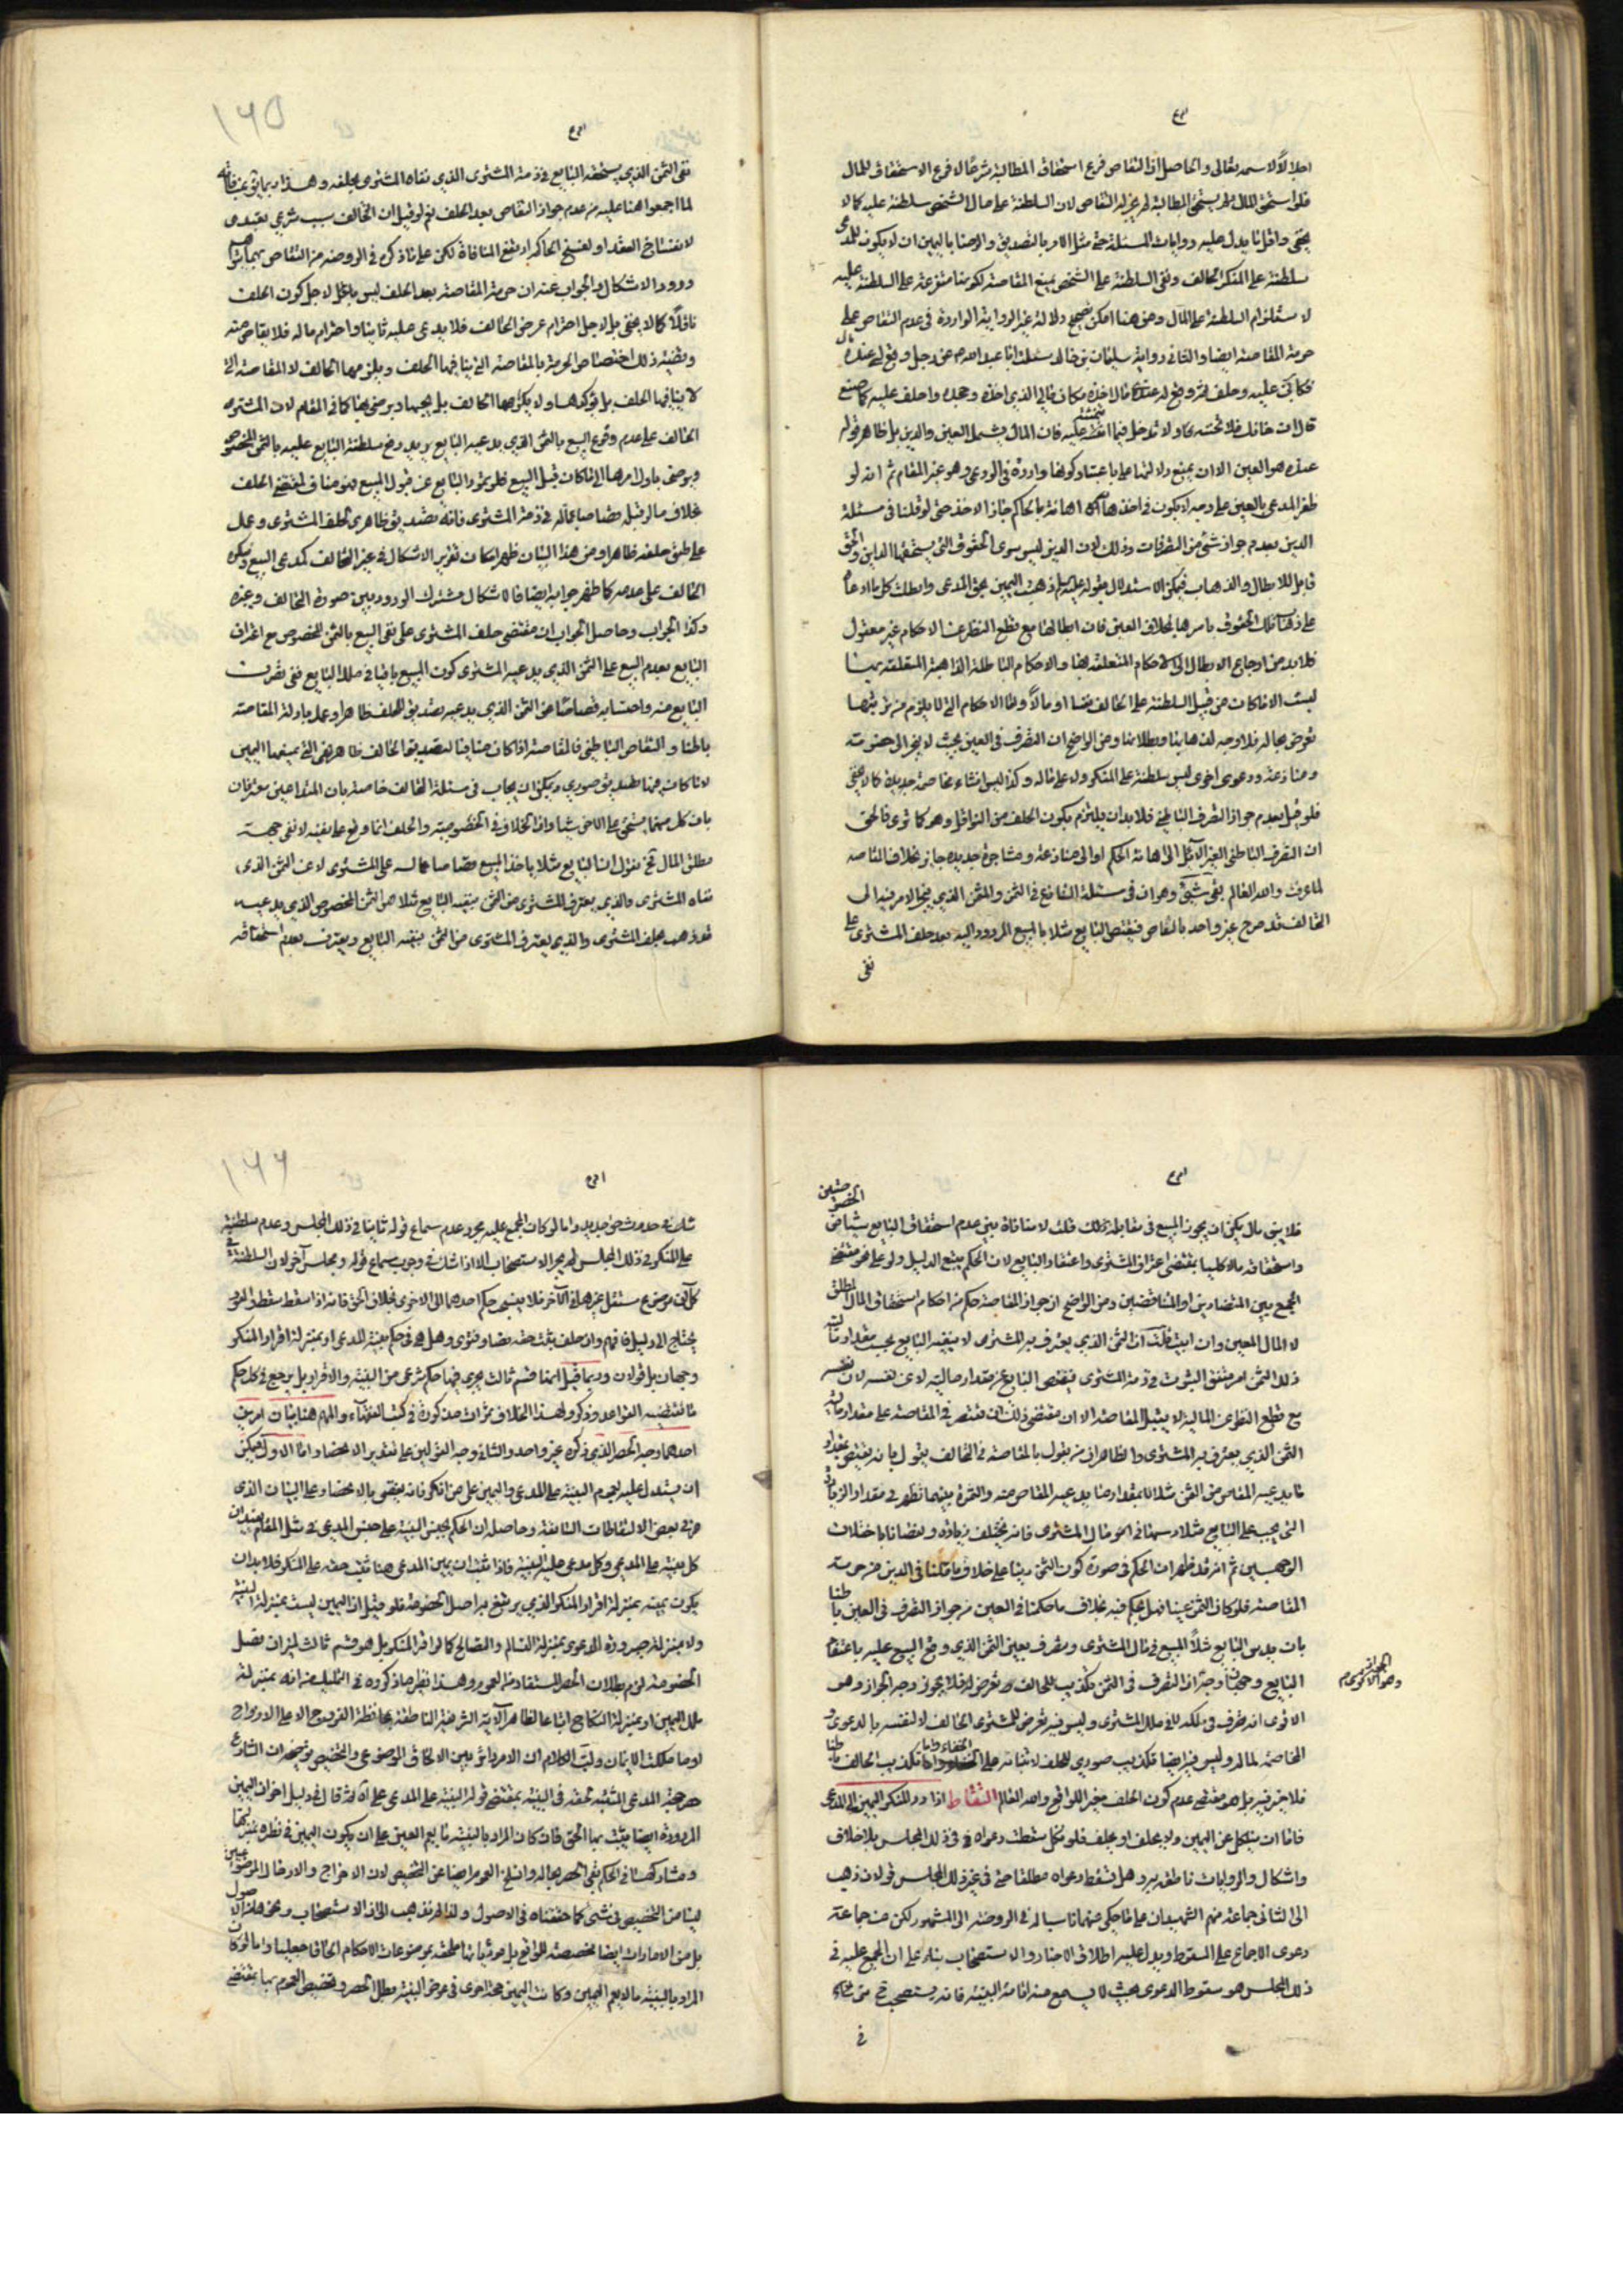 اجلالا لاسمه تعالى والحاصل ان التقاص فرع استحقاق المطالبة شرعا لا فرع الاستحقاق للمال
فلو استحق المال ولم يستحق المطالبة لم يجز له التقاص لان السلطنة على مال الشخص سلطنة عليه كما لا
يخفى واقل ما يدل عليه روايات المسئلة حتى مثل الامر بالتصديق والرضا باليمين ان لا يكون للمدعى
سلطنة على المنكر الحالف ونفى السلطنة على الشخص يمنع المقاصة لكونها متفرعة على السلطنة عليه
لاستلزام السلطنة على المال ومن هنا امكن تصحيح دلالة غير الرواية الواردة في عدم التقاص على
حرمة المقاصة ايضا والثانى رواية سليمان بن خالد سئلت ابا عبد الله عن رجل وقع لى عنده مال
فكابرنى عليه وحلف ثم وقع له عندى مال اخذه مكان مالى الذي اخذه وجحده واحلف عليه كما صنع
قال ان خانك فلا تخنه ولا تدخل فيما عبته عليه فان المال يشمل العين والدين بل ظاهر قوله
عنده هو العين الا ان يمنع دلالتها على باعتبار كونها واردة فى الودعى وهو غير المقام ثم انه لو
ظفر المدعى بالعين على وجه لا يكون فى اخذها اهانة بالحاكم جاز الاخذ حتى لو قلنا فى مسئلة
الدين بعدم جواز شئ من التصرفات وذلك لان الدين ليس سوى الحقوق التى يستحقها الداين والحق
قابل للابطال والذهاب فيمكن الاستدلال بقوله عليه السلم ذهبت اليمين بحق المدعى وابطلت كل ما ادعاه
على ذهاب تلك الحقوق باسرها بخلاف العين فان ابطالها مع قطع النظر عن الاحكام غير معقول
فلا بد من ارجاع الابطال الى الاحكام المتعلقة بها والاحكام الباطلة الذاهبة المتعلقة بها
ليست الا ما كانت من قبيل السلطنة على الحالف نفسا او مالا واما الاحكام التى لا يلزم من ترتيبها
تعرض بحاله فلا وجه لذهابها وبطلانها ومن الواضح ان التصرف فى العين بحيث لا ينجر الى خصومة
ومنازعة ودعوى اخرى ليس سلطنة على المنكر ولا على ماله وكذا ليس انشاء مخاصمة جديدة كما لا يخفى
فلو قيل بعدم جواز التصرف الباطنى فلا بد ان يلتزم بكون الحلف من النواقل وهو كما ترى فالحق
ان التصرف الباطنى الغير الآئل الى اهانة الحاكم او الى منازعة ومشاجرة جديدة جايز بخلاف المقاصه
لما عرفت والله العالم بقى شئ وهو ان فى مسئلة التنازع فى الثمن والمثمن الذي ينجر الامر فيه الى
التحالف قد صرح غير واحد بالتقاص فيقتص البايع مثلا بالمبيع المردود اليه بعد حلف المشترى على
نفى
١٦٥
نفى الثمن الذي يستحقه البايع فى ذمة المشترى الذي نفاه المشترى بحلفه وهذا ربما يق بمنافاته
لما اجمعوا هنا عليه من عدم جواز التقاص بعد الحلف نعم لو قيل ان التحالف سبب شرعى تعبدى
لانفساخ العقد او لفسخ الحاكم ارتفع المنافاة لكن على ما ذكره فى الروضة من التقاص
ورود الاشكال والجواب عنه ان حرمة المقاصة بعد الحلف ليس لاجل كون الحلف
ناقلا كما لا يخفى بل لاجل احترام عرض الحالف فلا يدعى عليه ثانيا واحترام ماله فلا يقاص منه
وقضية ذلك اختصاص الحرمة بالمقاصة التى ينافيها الحلف ويلزمها الحالف لا المقاصة التى
لا ينافيها الحلف بل يؤكدها ولا يكرهها الحالف بل يحبها ويرضى بها كما فى المقام لان المشترى
الحالف على عدم وقوع البيع بالثمن الذي يدعيه البايع يريد رفع سلطنة البايع عليه بالثمن المخصوص
ويرضى باول امرهما الى ما كان قبل البيع فلو تمرد البايع عن قبول المبيع فهو مناف لمقتضى الحلف
بخلاف ما لو قبله قصاصا عماله فى ذمة المشترى فانه تصديق ظاهرى لحلف المشترى وعمل
على طبق حلفه ظاهرا ومن هذا البيان ظهر امكان تقرير الاشكال فى غير التحالف كمدعى البيع ومنكره
الحالف على عدمه كما ظهر جوابه ايضا فالاشكال مشترك الورود بين صورة التحالف وغيره
وكذا الجواب وحاصل الجواب ان مقتضى حلف المشترى على نفى البيع بالثمن المخصوص مع اعتراف
البايع بعدم البيع على الثمن الذي يدعيه المشترى كون المبيع باقيا فى ملك البايع ففى تصرف
البايع منه واحتسابه قصاصا عن الثمن الذي يدعيه تصديق للحلف ظاهرا وعمل بادلة المقاصة
باطنا والتقاص الباطنى فالمقاصة اذا كان مبنيا لتصديق الحالف ظاهرا هى التى يمنعها اليمين
لا ما كان فيها تصديق صورى ويمكن ان يجاب فى مسئلة التحالف خاصة بان المتداعيين معترفان
بان كل منهما يستحق على الاخر شيئا وان الخلاف فى الخصوصية والحلف انما وقع على نفيه لا نفى جهة
مطلق المال فح نقول ان البايع مثلا ياخذ المبيع قصاصا عماله على المشترى لا عن الثمن الذى
نفاه المشترى والذي يعترف المشترى من الثمن ينفيه البايع مثلا هو الثمن المخصوص الذي يدعيه
قد ذهب بحلف المشترى والذي يعترف المشترى من الثمن ينفيه البايع ويعترف بعدم استحقاقه
فلا يبقى مال يمكن ان يحوز المبيع فى مقابله لذلك قلت لا منافاة بين عدم استحقاق البايع شيئا من الخصوصيتين
واستحقاقه مالا كليا بمقتضى اعتراف المشترى واعتقاد البايع لان الحكم يتبع الدليل ولو على نحو مقتضى
الجمع بين المتضادين او المتناقضين ومن الواضح ان جواز المقاصة حكم من احكام استحقاق المال المطلق
لا المال المعين وان ابيت قلت ان الثمن الذي يعترف به المشترى لا ينفيه البايع بحسب مقدار ماليته
ذلك الثمن امر متفق الثبوت فى ذمة المشترى فيقتص البايع عن مقدار ماليته لا عن نفسه لان نفسه
مع قطع النظر عن المالية لا يقبل المقاصة الا ان مقتضى ذلك ان يقتصر فى المقاصة على مقدار مالية
الثمن الذي يعترف به المشترى والظاهر ان من يقول بالمقاصة فى التحالف يقول بانه يقتص بمقدار
ما يدعيه المقاص من الثمن مثلا لا بمقدار ما يدعيه المقاص منه والثمرة بينهما تظهر فى مقدار الزيادة
التى يجب على البايع مثلا دسها فى اموال المشترى فانه يختلف زيادة ونقصانا باختلاف
الوجهين ثم انه قد ظهر ان الحكم فى صورة كون الثمن دينا على خلاف ما قلنا فى الدين من حرمة
المقاصة فلو كان الثمن عينا فهل يحكم فيه بخلاف ما حكمنا فى العين من جواز التصرف فى العين باطنا
بان يدس البايع مثلا المبيع فى مال المشترى ويتصرف بعين الثمن الذي وقع البيع عليه باعتقاد
البايع وجهان وجه ان التصرف فى الثمن تكذيب للحالف وتعرض له فلا يجوز وجه الجواز وهو
الجواز وهو الاقوى
الاقوى انه تصرف فى ملكه لا فى ملك المشترى وليس فيه تعرض للمشترى الحالف لا لنفسه بالدعوى و
المخاصمة لماله وليس فيه ايضا تكذيب صورى للحلف لابتنائه على الخفاء واما تكذيب الحالف باطنا
فلا حزر فيه بل هو مقتضى عدم كون الحلف مغير للواقع والله العالم التقاط اذا رد المنكر اليمين الى المدعى
فاما ان ينكل عن اليمين ولا يحلف او يحلف فلو نكل سقطت دعواه فى ذلك المجلس بلا خلاف
واشكال والروايات ناطقة به وهل تسقط دعواه مطلقا حتى فى غير ذلك المجلس قولان ذهب
الى الثانى جماعة منهم الشهيدان على ما حكى عنهما ناسبا له فى الروضة الى المشهور لكن عن جماعة
دعوى الاجماع على السقوط ويدل عليه اطلاق الاخبار والاستصحاب بناء على ان المجمع عليه فى
ذلك المجلس هو سقوط الدعوى بحيث لا يسمع منه اقامة البينة فانه يستصحب ح متى شك
فى
١٦٦
شك فى حدوث حق جديد واما لو كان المجمع عليه مجرد عدم سماع قوله ثانيا فى ذلك المجلس وعدم سلطنته
على المنكر فى ذلك المجلس لم يجر الاستصحاب الا اذا شك فى وجوب سماع قوله فى مجلس آخر لان السلطنة فى
كل آن موضوع مستقل غيرها فى الآخر فلا يستصحب حكم احدهما الى الاخرى بخلاف الحق فانه اذا سقط سقط والعود
يحتاج الى دليل فافهم وان حلف يثبت حقه نصا وفتوى وهل هو فى حكم بينة المدعى او بمنزلة اقرار المنكر
وجهان بل قولان وربما قيل انها قسم ثالث يجرى فيها حكم شرعى من البينة والاقرار بل يرجع فى كل حكم
ما تقتضيه القواعد وذكروا لهذا الخلاف ثمرات مذكورة فى كتب الفقهاء والمهم هنا بيان امرين
احدهما وجه الحصر الذي ذكره غير واحد والثانى وجه القولين على تقدير الانحصار اما الاول فيمكن
ان يستدل عليه بعموم البينة على المدعى واليمين على من انكر فانه يقضى بالانحصار على البيان الذى
مر فى بعض الالتقاطات السابقة وحاصله ان الحكم بجنس البينة على جنس المدعى فى مثل المقام يفيد ان
كل بينة على المدعى وكل مدعى عليه البينة فاذا ثبت ان يمين المدعى هنا يثبت حقه على المنكر فلا بد ان
يكون بينة بمنزلة اقرار المنكر الذي يرتفع به اصل الخصومة فلو قيل ان اليمين ليست بمنزلة البينة
ولا بمنزلة صيرورة الدعوى بمنزلة التسالم والتصالح كما لو اقر المنكر بل هو قسم ثالث لم يزان يفصل
الخصومة لزم بطلان الحصر المستفاد من العموم وهذا نظير ما ذكروه فى التحليل من انه بمنزلة
ملك اليمين او بمنزلة النكاح اتباعا لظاهر الآية الشريفة الناطقة بمحافظة الفروج الا على الازواج
او ما ملكت الايمان وليت الكلام ان الامر دائر بين الالحاق الموضوعى والتخصيص توضيحه ان الشارع
حصر حجية المدعى المثبتة لحقه فى البينة بمقتضى قوله البينة على المدعى على انه ثم قال فى دليل آخر ان اليمين
المردودة ايضا يثبت بها الحق فان كان المراد بالبينة ما يعم العين على ان يكون اليمين فى نظره عينها
ومشاركتها فى الحكم بقى الحصر بحاله وانسلخ العموم ايضا عن التخصيص لان الاخراج والادخال الموضوعيين
ليسا من التخصيص فى شئ كما حققناه فى الاصول ولذا لم يذهب الى ان الاستصحاب ونحوه من الاصول
بل من الامارات ايضا مخصصة للواقع بل هو شأنها ملحقة بموضوعات الاحكام الحاقا جعليا واما لو كان
المراد بالبينة ما لا يعم اليمين وكانت اليمين حجة اخرى فى عرض البينة بطل الحصر وتخصيص العموم بما يقتضى